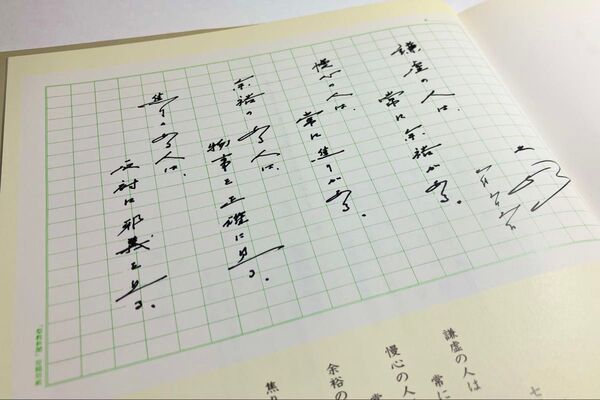 謙虚の人は、
常に余裕がある。
慢心の人は、
常に焦りがある。
余裕のある人は、
物事を正確に見る。
焦りのある人は、
反対に邪義を見る。
七
謙虚の人は
常に
慢心の人
常
余裕の
焦り